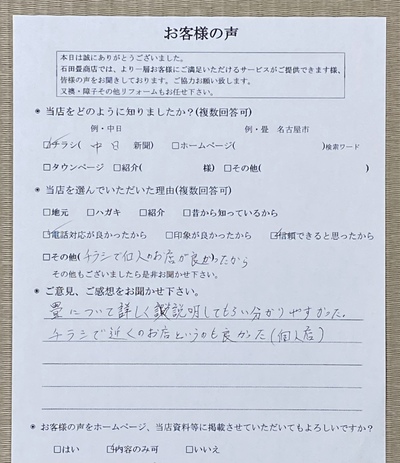 お客様の声
本日は誠にありがとうございました。
石田畳商店では、より一層お客様にご満足いただけるサービスがご提供できます様、
皆様の声をお聞きしております。ご協力お願い致します。
又襖・障子その他リフォームもお任せ下さい。
◉ 当店をどのように知りましたか?(複数回答可)
例・中日 例・畳 名古屋市
☑チラシ( 中日 新聞) □ホームページ( )検索ワード
□タウンページ □紹介( 様) □その他( )
◉ 当店を選んでいただいた理由(複数回答可)
□地元 □ハガキ □紹介 □昔から知っているから
☑電話対応が良かったから □印象が良かったから ☑信頼できると思ったから
□その他(チラシで個人のお店が良かったから
その他もございましたら是非お聞かせ下さい。
◉ ご意見、ご感想をお聞かせ下さい。
畳について詳しく説明してもらい分かりやすかった。
チラシで近くのお店というのも良かった(個人店)
◉ お客様の声をホームページ、当店資料等に掲載させていただいてもよろしいですか?
□はい ☑内容のみ可 □いいえ